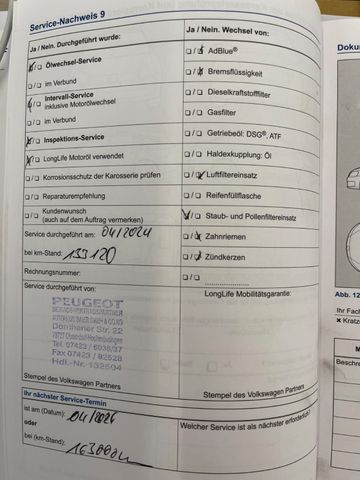 Service-Nachweis 9
Ja / Nein. Durchgeführt wurde:
Ölwechsel-Service
im Verbund
Intervall-Service
inklusive Motorölwechsel
im Verbund
Inspektions-Service
LongLife Motoröl verwendet
Korrosionsschutz der Karosserie prüfen
Reparaturempfehlung
Kundenwunsch
(auch auf dem Auftrag vermerken)
Service durchgeführt am: 04/2024
bei km-Stand: 133120
Rechnungsnummer:
Service durchgeführt von:
PEUGEOT
Dornhaner Str. 22
Tel. 07423 / 6036/37
Fax 07423 / 82528
Hdl.-Nr. 132504
Stempel des Volkswagen Partners
Ihr nächster Service-Termin
ist am (Datum): 04/2026
oder
bei (km-Stand): 163000km
Ja / Nein. Wechsel von:
AdBlue®
Bremsflüssigkeit
Dieselkraftstofffilter
Gasfilter
Getriebeöl: DSG®, ATF
Haldexkupplung: Öl
Luftfiltereinsatz
Reifenfüllflasche
Staub- und Pollenfiltereinsatz
Zahnriemen
Zündkerzen
LongLife Mobilitätsgarantie:
Stempel des Volkswagen Partners
Welcher Service ist als nächster erforderlich?
Abb. 12
Ihr Fach